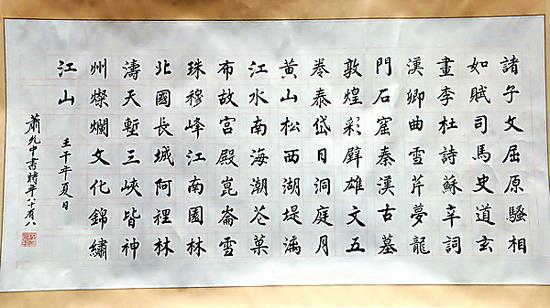 諸子文屈原騷相
如賦司馬史道玄
畫李杜詩蘇辛詞
漢卿曲雪芹夢龍
門石窟秦漢古墓
敦煌彩壁雄文五
卷泰岱日洞庭月
黃山松西湖堤漓
江水南海潮菓
布故宮殿崑崙雪
珠穆峰江南園林
北國長城阿裡林
濤天塹三峽皆神
州燦爛文化錦繡
江山
壬午年夏日
蕭允中書時年八十有八